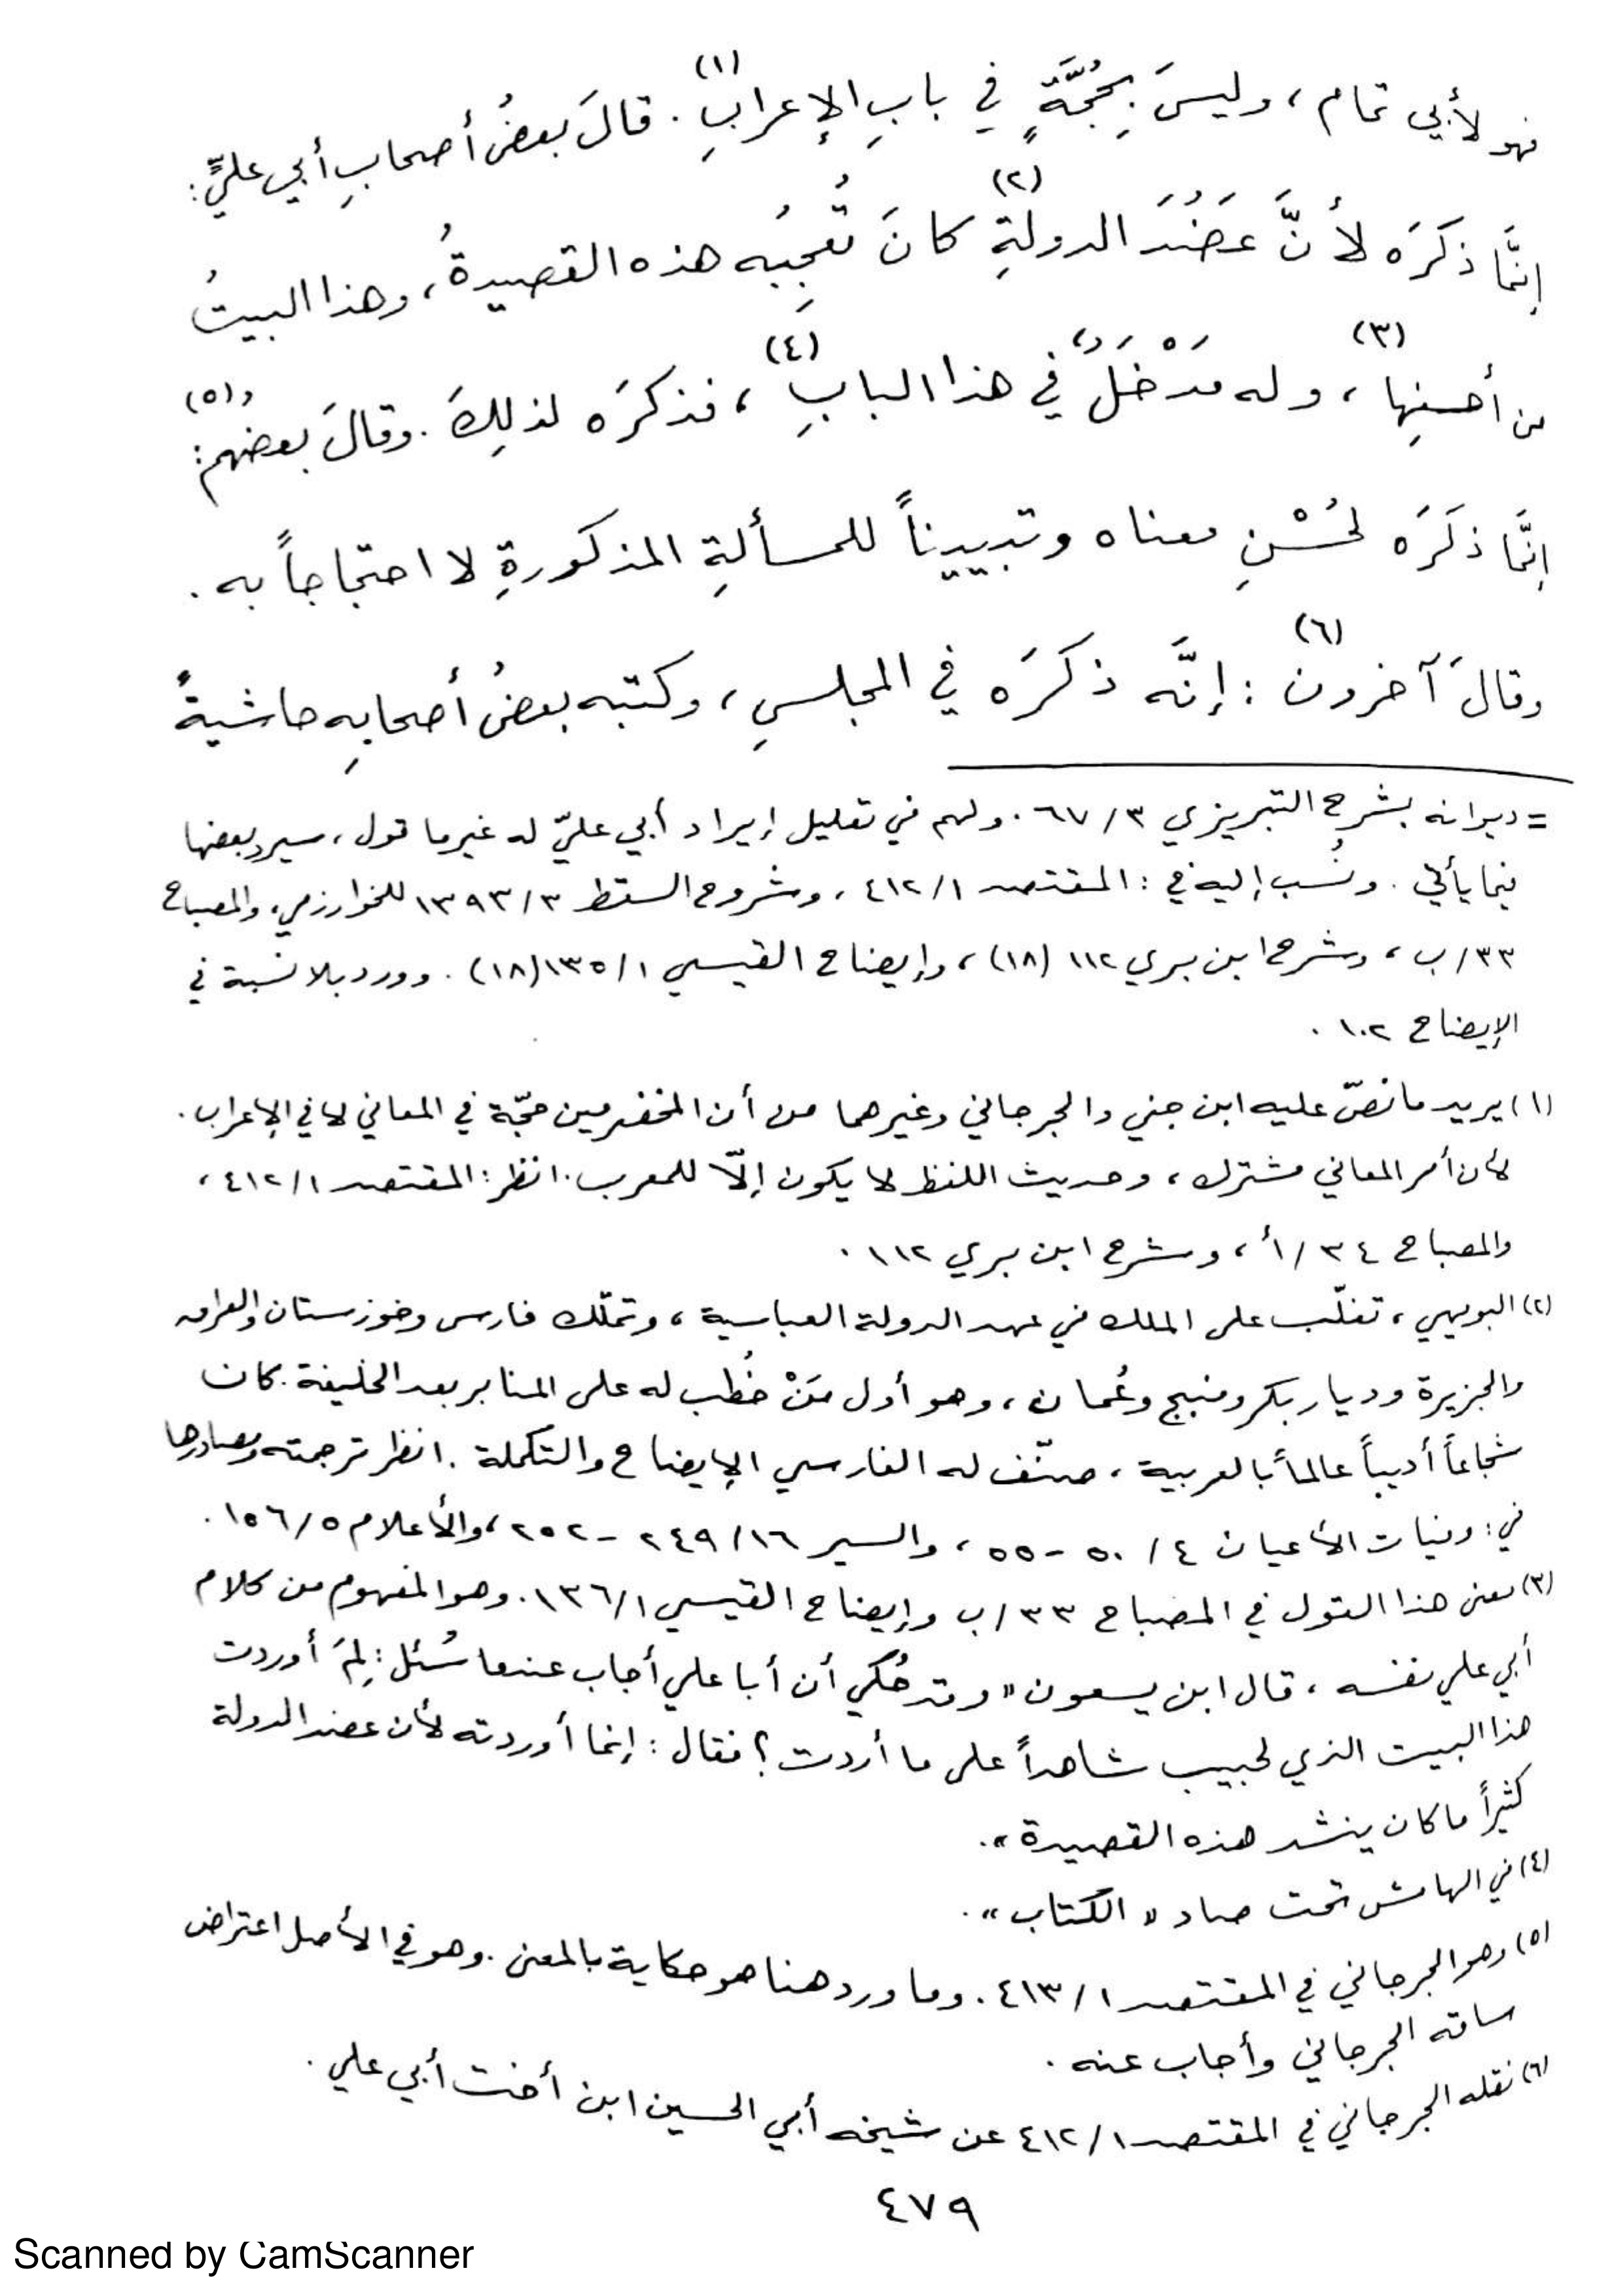 فهو لأبي تمام، وليسَ بِحُجَّةٍ في بابِ الإعرابِ(١). قالَ بعضُ أصحابِ أبي عليٍّ:
إنَّما ذكَرَه لأنَّ عَضُدَ الدولةِ(٢) كانَ تُعجِبُه هذه القصيدةُ، وهذا البيتُ
من أحسنِها(٣)، وله مَدْخَلٌ في هذا البابِ(٤)، فذكرَه لذلِكَ. وقالَ بعضُهم(٥):
إنَّما ذكَرَه لحُسْنِ معناه وتبييناً للمسألةِ المذكورةِ لا احتجاجاً به.
وقالَ آخرون(٦): إنَّه ذكَرَه في المجلسِ، وكتبه بعضُ أصحابِه حاشيةً
= ديوانه بشرح التبريزي ٣/ ٦٧. ولهم في تعليل إيراد أبي عليّ له غير ما قول، سيرد بعضها
فيما يأتي. ونُسب إليه في: المقتصد ١/ ٤١٢، وشروح السقط ٣/ ١٣٩٣ للخوارزمي، والمصباح
٣٣/ ب، وشرح ابن بري ١١٢ (١٨)، وإيضاح القيسي ١/ ١٣٥ (١٨). وورد بلا نسبة في
الإيضاح ١٠٢.
(١) يريد ما نصّ عليه ابن جني والجرجاني وغيرهما من أن المخضرمين حجّة في المعاني لا في الإعراب.
لأن أمر المعاني مشترك، وحديث اللفظ لا يكون إلّا للمعرب. انظر: المقتصد ١/ ٤١٢،
والمصباح ٣٤/ أ، وشرح ابن بري ١١٢.
(٢) البويهي، تغلّب على الملك في عهد الدولة العباسية، وتملّك فارس وخوزستان والعراق
والجزيرة وديار بكر ومنبج وعُمان، وهو أول مَنْ خُطب له على المنابر بعد الخليفة. كان
شجاعاً أديباً عالماً بالعربية، صنّف له الفارسي الإيضاح والتكملة. انظر ترجمته ومصادرها
في: وفيات الأعيان ٤/ ٥٠ - ٥٥، والسير ١٦/ ٢٤٩ - ٢٥٢، والأعلام ٥/ ١٥٦.
(٣) معنى هذا القول في المصباح ٣٣/ ب وإيضاح القيسي ١/ ١٣٦. وهو المفهوم من كلام
أبي علي نفسه، قال ابن يسعون «وقد حُكي أن أبا علي أجاب عندما سُئل: لِمَ أوردت
هذا البيت الذي لحبيب شاهداً على ما أردت؟ فقال: إنما أوردته لأن عضد الدولة
كثيراً ما كان ينشد هذه القصيدة».
(٤) في الهامش تحت صاد «الكتاب».
(٥) وهو الجرجاني في المقتصد ١/ ٤١٣. وما ورد هنا هو حكاية بالمعنى. وهو في الأصل اعتراض
ساقه الجرجاني وأجاب عنه.
(٦) نقله الجرجاني في المقتصد ١/ ٤١٢ عن شيخه أبي الحسين ابن أخت أبي علي.
٤٧٩
Scanned by CamScanner